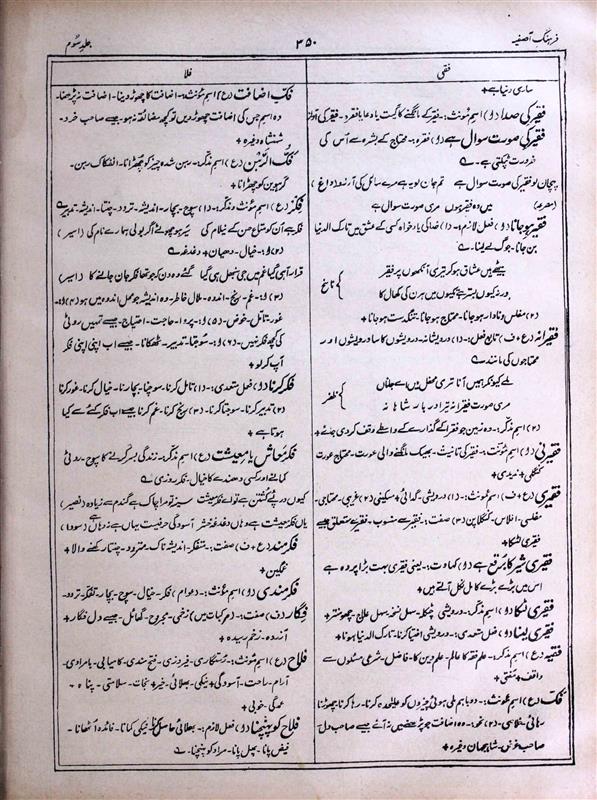 فرہنگ آصفیہ
۳۵۰
جلد سوم
فقی
ساری دنیا ہے +
فقیر کی صدا (و) اسم مؤنث: فقیر کے مانگنے کا گیت یا دعا یا فقرہ - فقیر کی آواز
فقیر کی صورت سوال ہے (و) فقرہ: محتاج کے بشرہ سے اُس کی
ضرورت ٹپکتی ہے - ے
پہچان لو فقیر کی صورت سوال ہے تم جان لو یہ ہے مرے سائل کی آرزو (داغ)
میں وہ فقیر ہوں مری صورت سوال ہے
فقیر ہو جانا (و) فعل لازم: (۱) خدا کی یاد خواہ کسی کے عشق میں تارک الدنیا
بن جانا - جوگ لے لینا - ے
بیٹھے ہیں عشاق ہو کر تیری آنکھوں پر فقیر
ورنہ کیوں بستر بنے کیوں میں ہرن کی کھال کا
ناسخ
(۲) مفلس و نادار ہو جانا - محتاج ہو جانا - تنگدست ہو جانا +
فقیرانہ (ع + ف) تابع فعل: (۱) درویشانہ - درویشوں کا سا - درویشوں اور
محتاجوں کی مانند ے
مری صورت فقیرانہ ترا دربار شاہانہ
ظفر
(۲) اسم مذکر: وہ زمین جو فقرا کے گذارے کے واسطے وقف کر دی جائے +
فقیرنی (و) اسم مؤنث: فقیر کی تانیث - بھیک مانگنے والی عورت - محتاج عورت
کنگلی + ندیدی +
فقیری (ع + ف) اسم مؤنث: (۱) درویشی - گدائی + مسکینی (۲) غریبی - محتاجی -
مفلسی - افلاس - کنگلاپن (۳) صفت: فقیر سے منسوب - فقیر سے متعلق جیسے
فقیری لٹکا +
فقیری شیر کا برقع ہے (و) کہاوت: یعنی فقیری بہت بڑا پردہ ہے
اس میں بڑے بڑے کامل نکل آتے ہیں +
فقیری لٹکا (و) اسم مذکر: درویشی چٹکلا - سہل نسخہ - سہل علاج - چھومنتر +
فقیری لینا (و) فعل متعدی: درویشی اختیار کرنا - تارک الدنیا ہونا +
فقیہ (ع) اسم مذکر: علم فقہ کا عالم - علم دین کا - فاضل - شرعی مسئلوں سے
واقف - مفتی +
فک (ع) اسم مؤنث: دو باہم ملی ہوئی چیزوں کو علیحدہ کرنا - رہا کرنا - چھڑانا
رہائی - خلاصی - (۲) نحو: وہ اضافت جو پڑھنے میں نہ آئے جیسے صاحب دل -
صاحب غرض - شاہجہان وغیرہ +
فلا
فک اضافت (ع) اسم مؤنث: اضافت کا چھوڑ دینا - اضافت نہ پڑھنا -
وہ اسم جس کی اضافت چھوڑ دیں تو کچھ مضائقہ نہ ہو جیسے صاحب خرد -
شہنشاہ وغیرہ +
فک الرہن (ع) اسم مذکر - رہن شدہ چیز کو چھڑانا - انفکاک رہن -
گرو بین کو چھڑانا +
فکر (ع) اسم مؤنث و مذکر: (۱) سوچ - بچار - اندیشہ - تردد - چنتا - اندیشہ - تدبیر ے
(۲) و: خیال - دھیان + دغدغہ ے
(۳) و: غم - رنج - اندوہ - ملال خاطر - وہ اندیشہ جو عمل اندوہ میں ہو (۴) و:
غور - تامل - خوض - (۵) و: پروا - حاجت - احتیاج - جیسے تمہیں روٹی
کی کچھ فکر نہیں - (۶) و: سوجتا - تدبیر - ٹھکانا - جیسے اب اپنی اپنی فکر
آپ کر لو +
فکر کرنا (و) فعل متعدی: (۱) تامل کرنا - سوچنا - بچارنا - خیال کرنا - غور کرنا
(۲) تدبیر کرنا - سوجتا کرنا - (۳) رنج کرنا - غم کرنا جیسے اب فکر کئے سے کیا
ہوتا ہے +
فکر معاش یا معیشت (ع) اسم مذکر - زندگی بسر کرنے کا سوچ - روٹی
کمانے اور کسی دھندے کا خیال - فکر روزی ے
یاں فکر معیشت ہے وہاں دغدغۂ حشر آسودگی حرفیست یہاں ہے نہ وہاں ہے (سودا)
فکر مند (ع + ف) صفت: متفکر - اندیشہ ناک - متردد - چنتا رکھنے والا +
غمگین +
فکر مندی (و) اسم مؤنث: (عوام) فکر - خیال - سوچ - بچار - تفکر - تردد -
فگار (ف) صفت: (مرکبات میں) زخمی - مجروح - گھائل - جیسے دل فگار +
آزردہ - زخم رسیدہ +
فلاح (ع) اسم مؤنث: رستگاری - فیروزی - فتح مندی - کامیابی - بامرادی -
آرام - راحت - آسودگی + نیکی - بھلائی - خیر + نجات - سلامتی - پناہ +
عمدگی - خوبی +
فلاح کو پہنچنا (و) فعل لازم: بھلائی حاصل کرنا - نیکی کمانا - فائدہ اُٹھانا -
فیض پانا - پھل پانا - مراد کو پہنچنا - ے